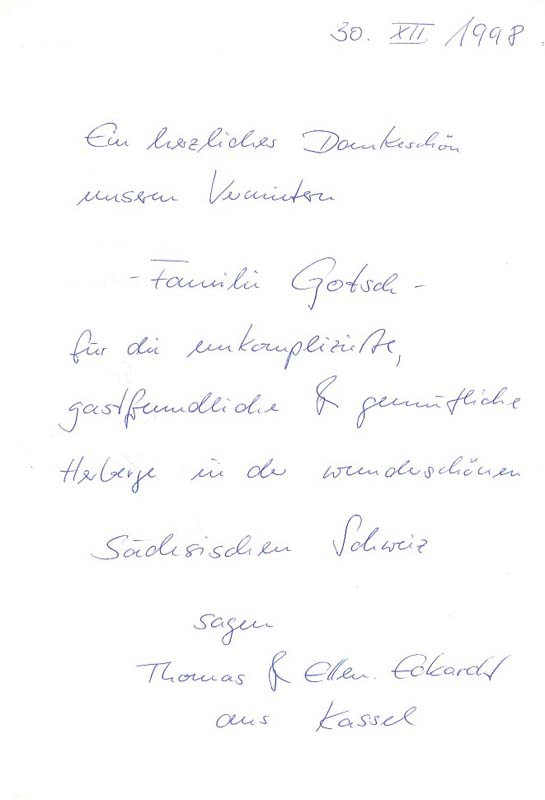 30. XII 1998
Ein herzliches Dankeschön
unseren Vermietern
- Familie Gotsch -
für die unkomplizierte,
gastfreundliche & gemütliche
Herberge in der wunderschönen
Sächsischen Schweiz
sagen
Thomas & Ellen Eckardt
aus Kassel